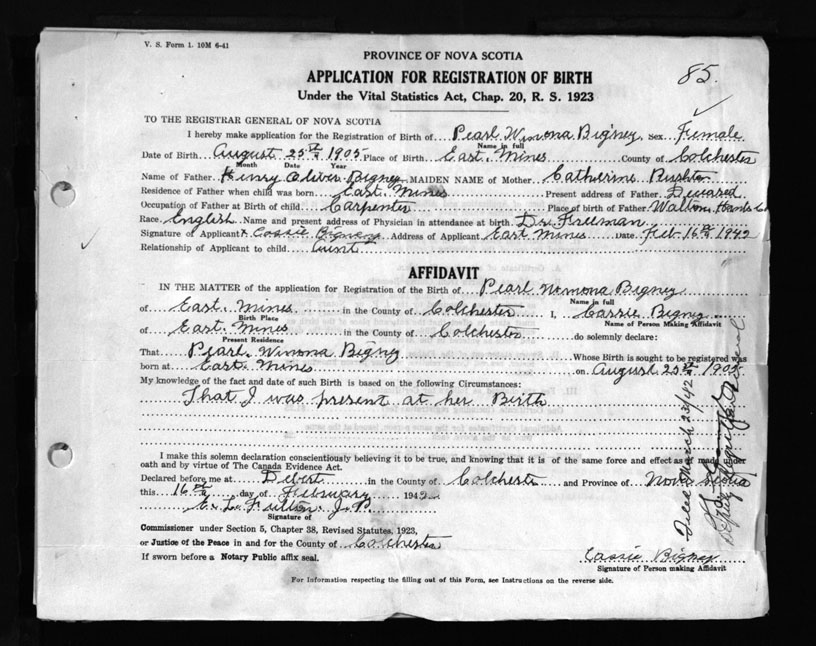 V. S. Form 1. 10M 6-41
PROVINCE OF NOVA SCOTIA
APPLICATION FOR REGISTRATION OF BIRTH
85.
Under the Vital Statistics Act, Chap. 20, R. S. 1923
TO THE REGISTRAR GENERAL OF NOVA SCOTIA
I hereby make application for the Registration of Birth of Pearl Winona Bigney. Sex Female
Name in full
Date of Birth August 25th 1905 Place of Birth East Mines County of Colchester
Month Date Year
Name of Father Henry Oliver Bigney MAIDEN NAME of Mother Catherine Rushton
Residence of Father when child was born East Mines Present address of Father Deceased
Occupation of Father at Birth of child Carpenter Place of birth of Father Walton, Hants Co
Race English Name and present address of Physician in attendance at birth Dr. Freeman
Signature of Applicant x Cassie Bigney Address of Applicant East Mines Date Feb 16th 1942
Relationship of Applicant to child Aunt
AFFIDAVIT
IN THE MATTER of the application for Registration of the Birth of Pearl Winona Bigney
Name in full
of East Mines in the County of Colchester I, Cassie Bigney
Birth Place Name of Person Making Affidavit
of East Mines in the County of Colchester do solemnly declare:
Present Residence
That Pearl Winona Bigney Whose Birth is sought to be registered was
born at East Mines on August 25th 1905
My knowledge of the fact and date of such Birth is based on the following Circumstances:
That I was present at her Birth
I make this solemn declaration conscientiously believing it to be true, and knowing that it is of the same force and effect as if made under
oath and by virtue of The Canada Evidence Act.
Declared before me at Debert in the County of Colchester and Province of Nova Scotia
this 16th day of February 1942
E. L. Fulton J. P.
Signature of
Commissioner under Section 5, Chapter 38, Revised Statutes, 1923,
or Justice of the Peace in and for the County of Colchester
If sworn before a Notary Public affix seal.
Cassie Bigney
Signature of Person making Affidavit
For Information respecting the filling out of this Form, see Instructions on the reverse side.
Filed March 23/42
Deputy Registrar General